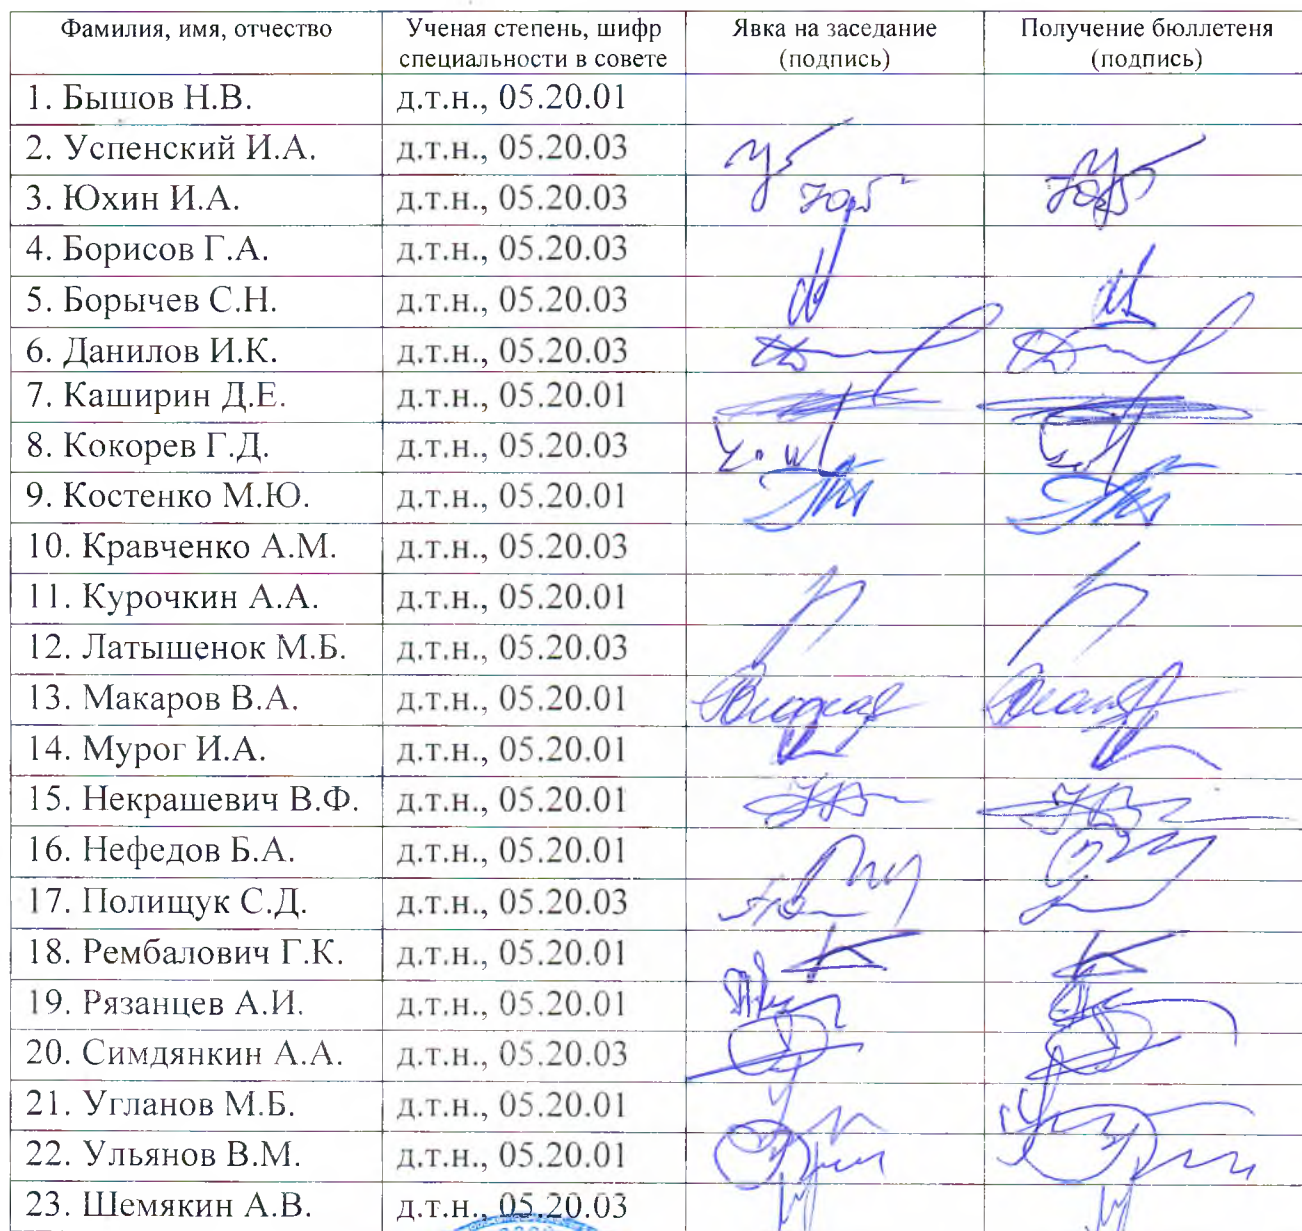 Фамилия, имя, отчество
Ученая степень, шифр
специальности в совете
Явка на заседание
(подпись)
Получение бюллетеня
(подпись)
1. Бышов Н.В. д.т.н., 05.20.01
2. Успенский И.А. д.т.н., 05.20.03
3. Юхин И.А. д.т.н., 05.20.03
4. Борисов Г.А. д.т.н., 05.20.03
5. Борычев С.Н. д.т.н., 05.20.03
6. Данилов И.К. д.т.н., 05.20.03
7. Каширин Д.Е. д.т.н., 05.20.01
8. Кокорев Г.Д. д.т.н., 05.20.03
9. Костенко М.Ю. д.т.н., 05.20.01
10. Кравченко А.М. д.т.н., 05.20.03
11. Курочкин А.А. д.т.н., 05.20.01
12. Латышенок М.Б. д.т.н., 05.20.03
13. Макаров В.А. д.т.н., 05.20.01
14. Мурог И.А. д.т.н., 05.20.01
15. Некрашевич В.Ф. д.т.н., 05.20.01
16. Нефедов Б.А. д.т.н., 05.20.01
17. Полищук С.Д. д.т.н., 05.20.03
18. Рембалович Г.К. д.т.н., 05.20.01
19. Рязанцев А.И. д.т.н., 05.20.01
20. Симдянкин А.А. д.т.н., 05.20.03
21. Угланов М.Б. д.т.н., 05.20.01
22. Ульянов В.М. д.т.н., 05.20.01
23. Шемякин А.В. д.т.н., 05.20.03